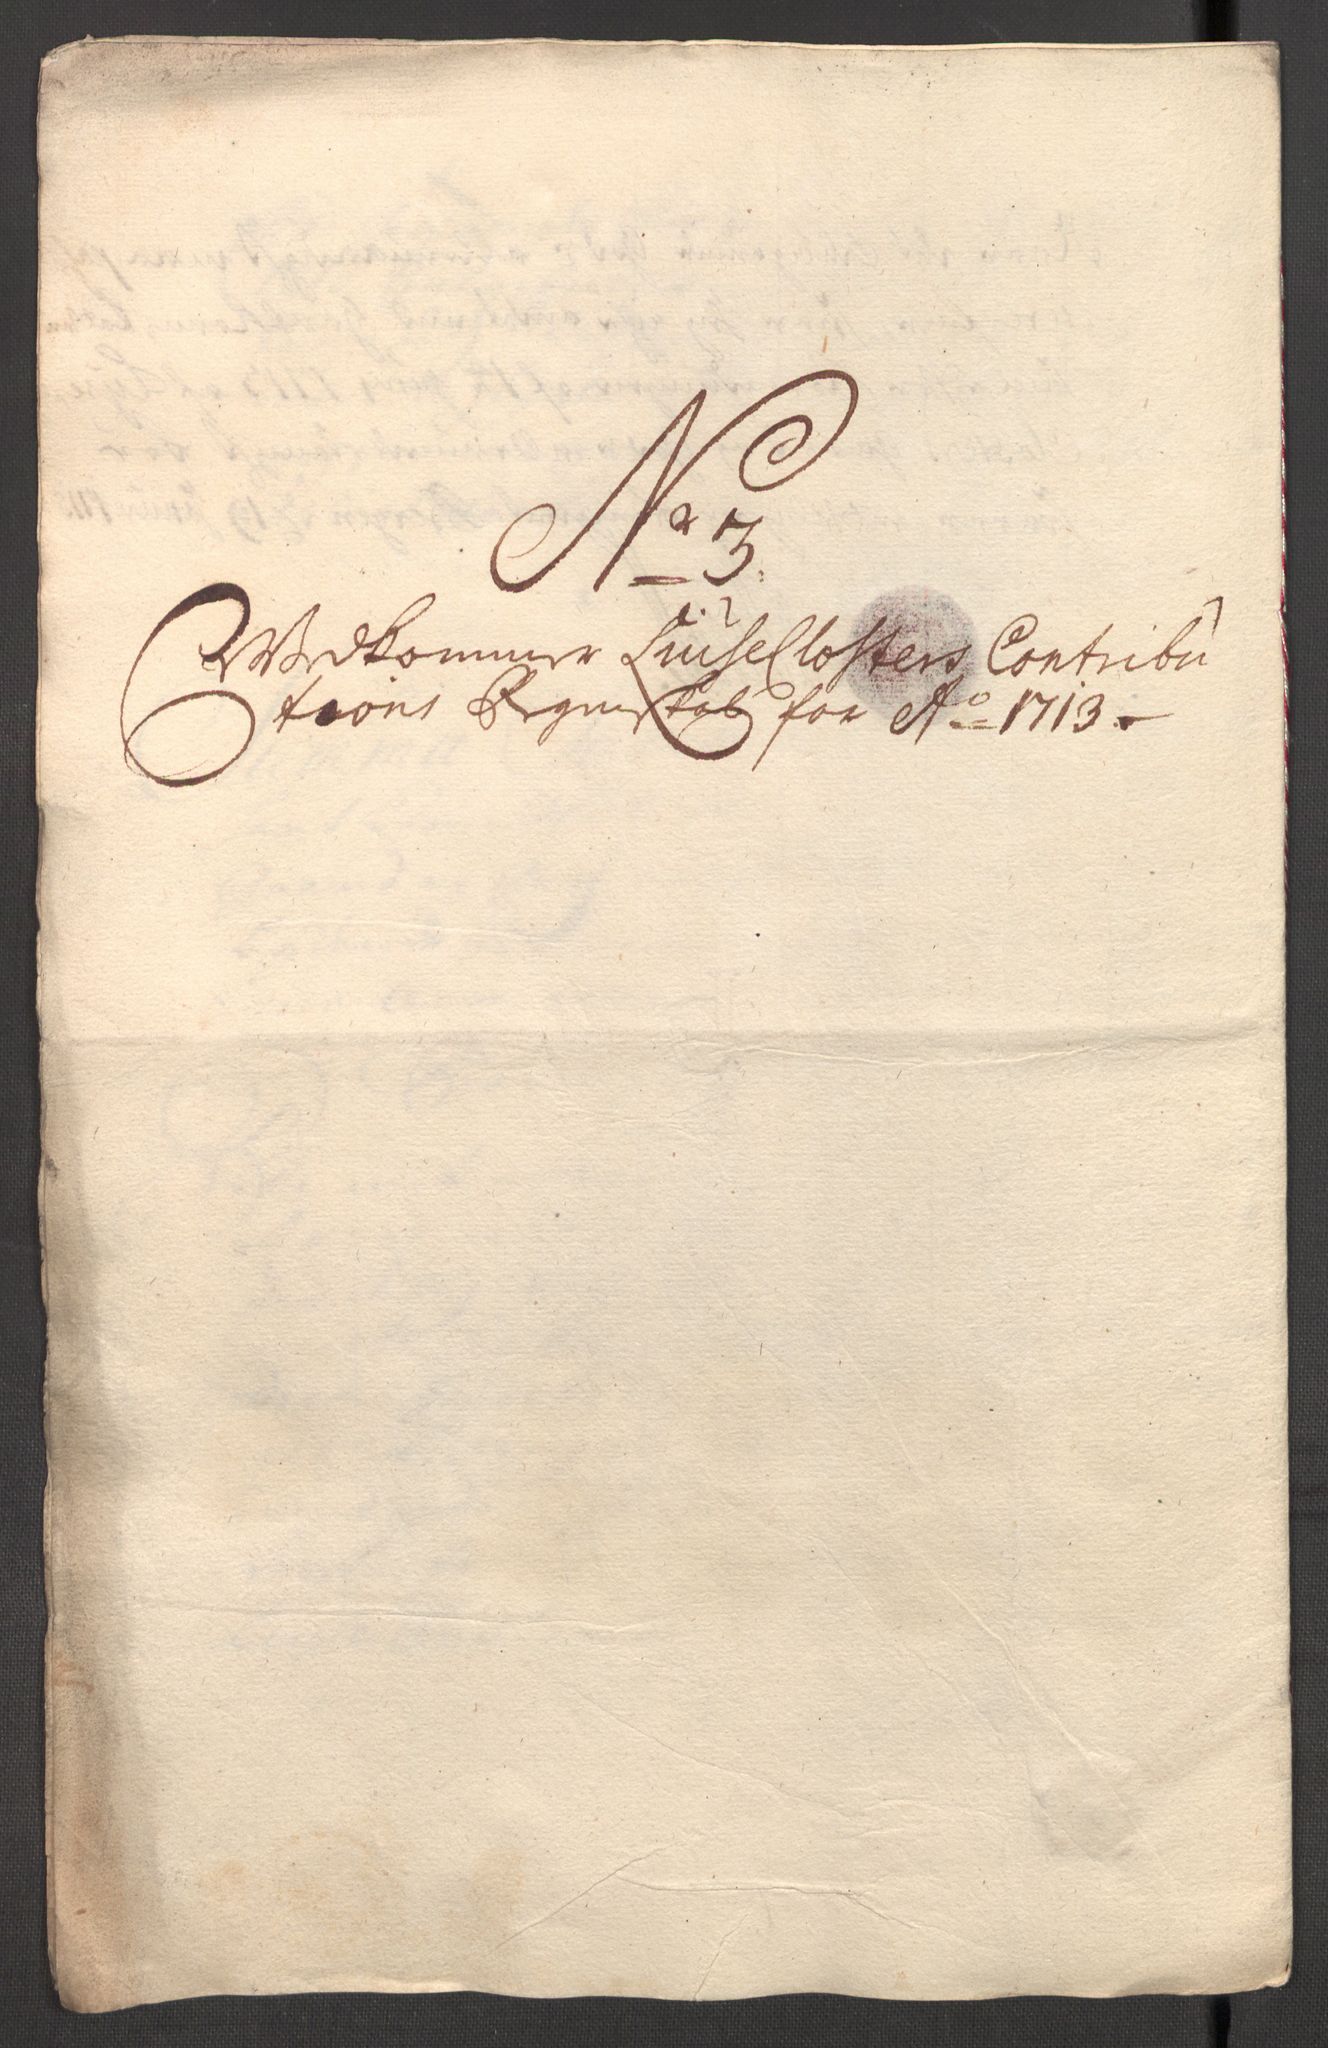 No 3.
Vedkommer Lyse Closters Contribu
tions Regnskab for Ao 1713.